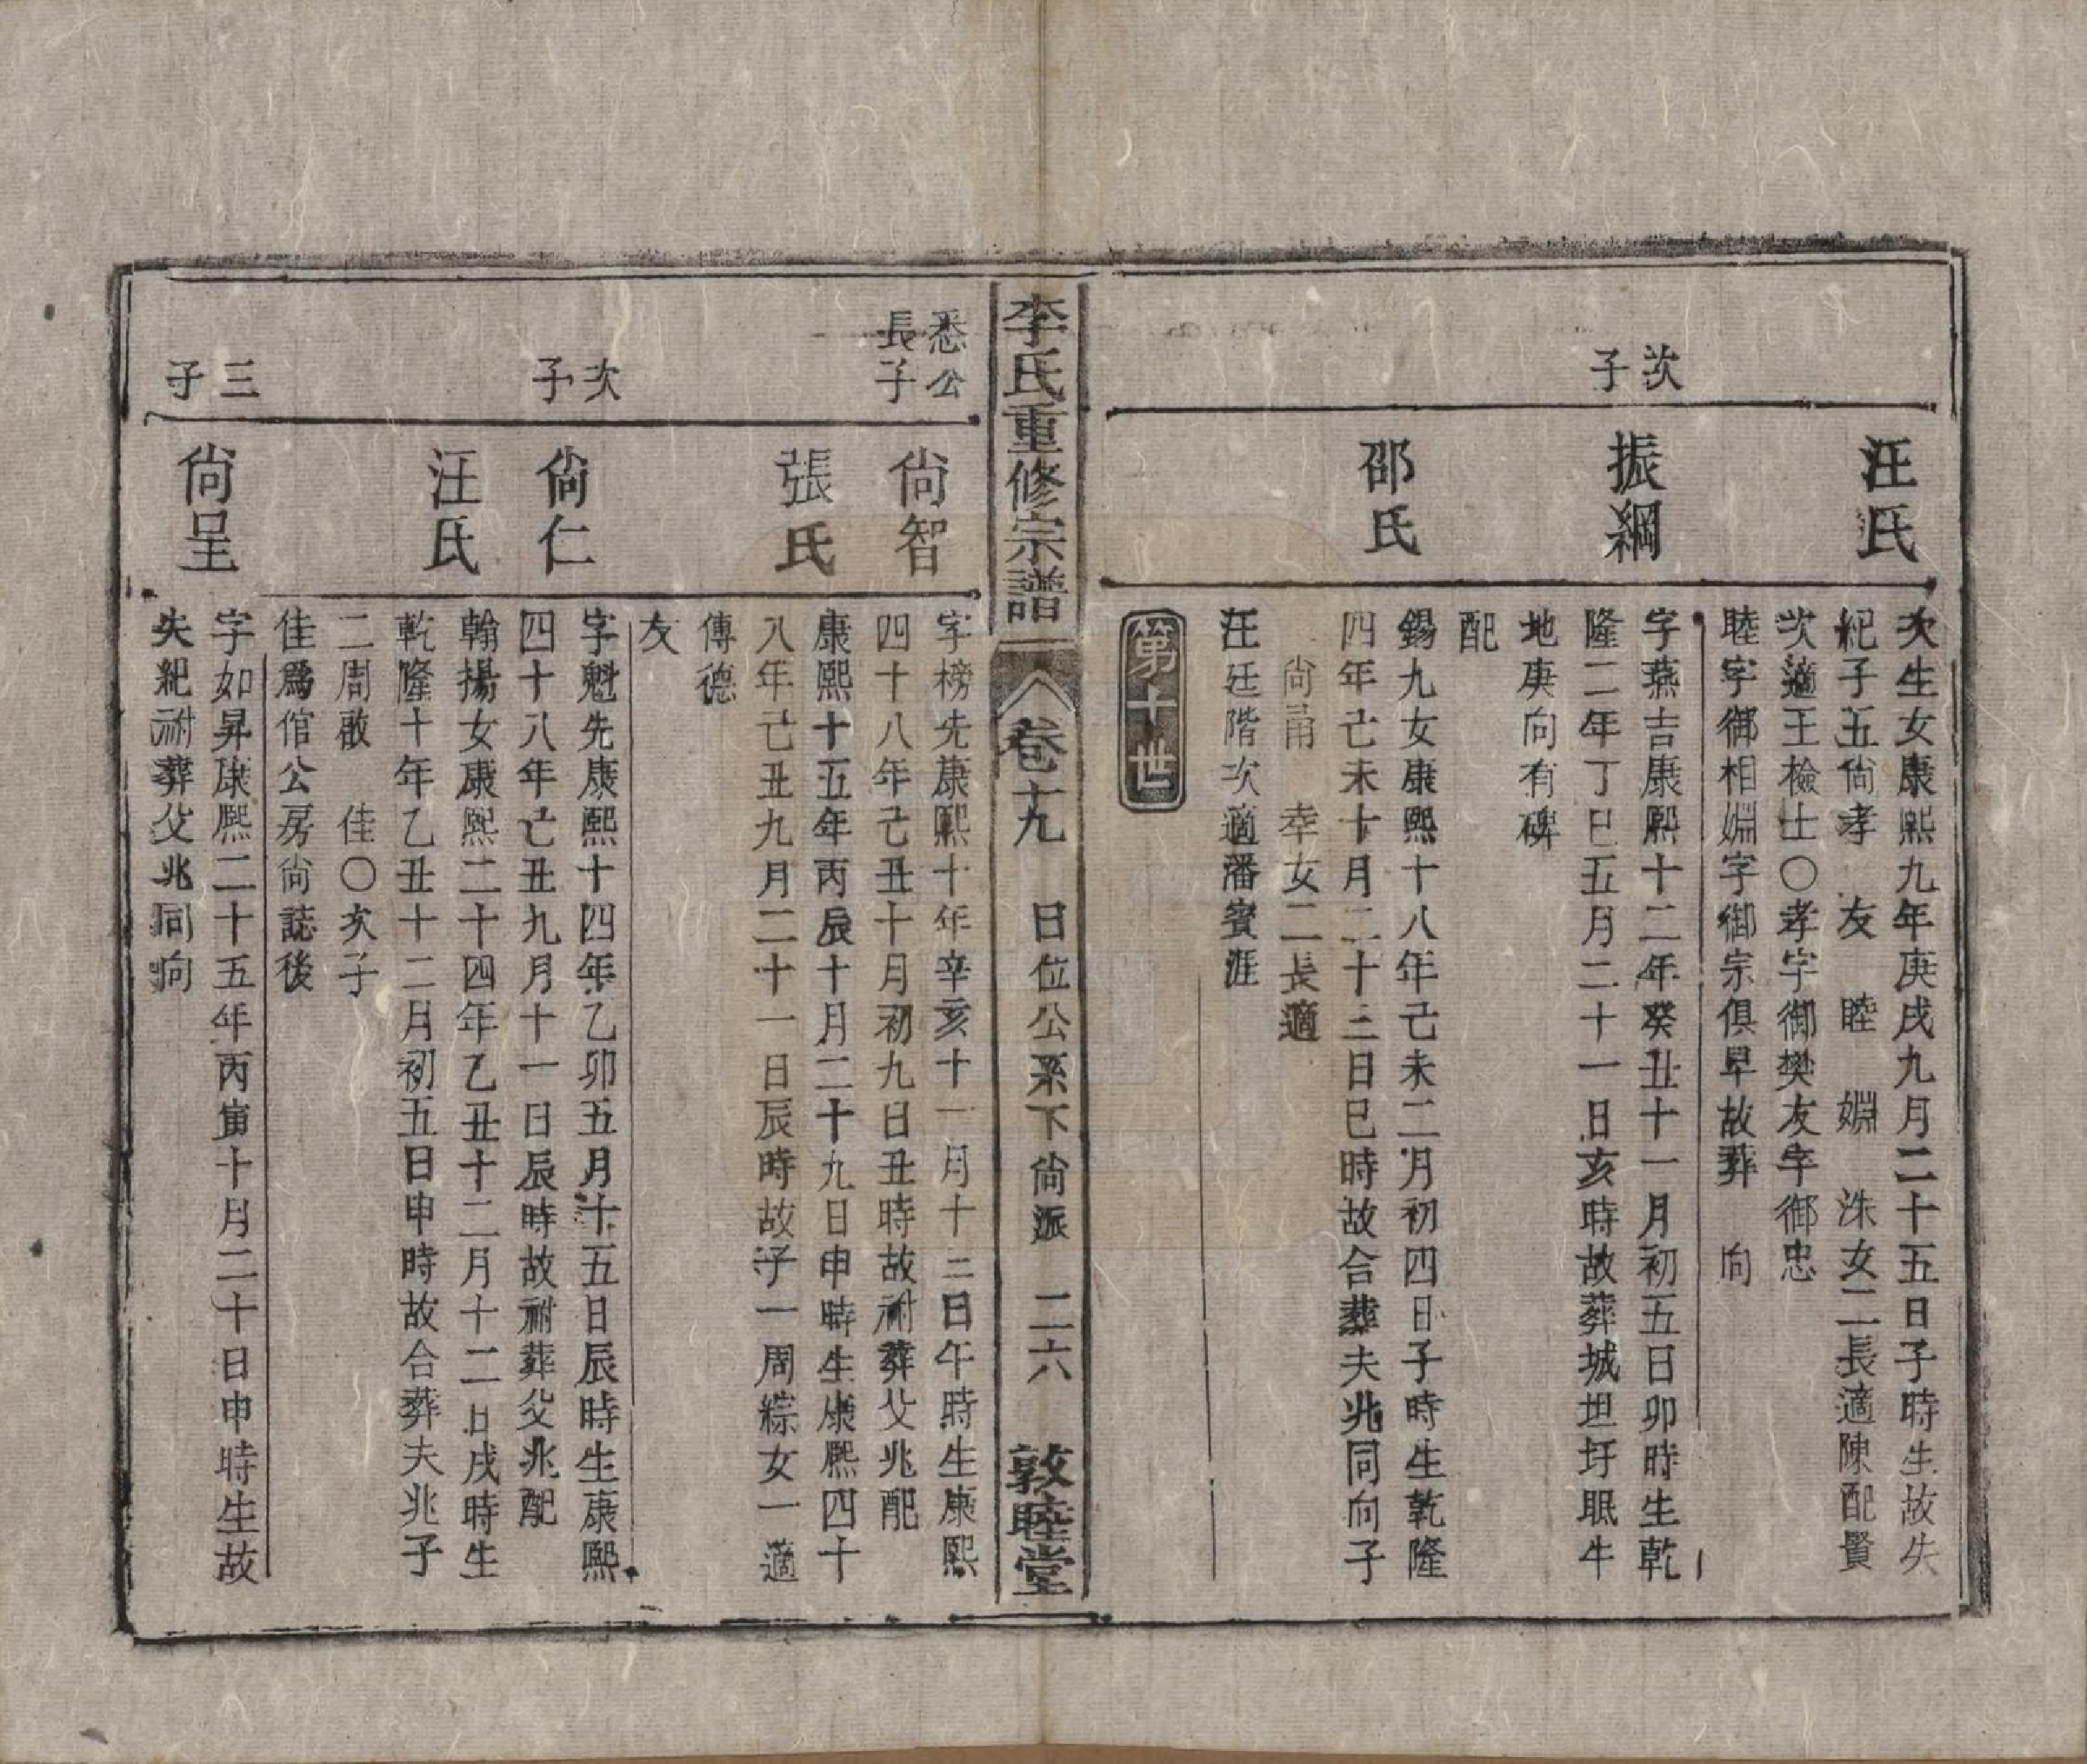 汪氏
次生女康熙九年庚戌九月二十五日子時生故失
紀子五尙孝　友　睦　婣　洙女二長適陳配賢
次適王檢士〇孝字御樊友字御忠
睦字御相婣字御宗俱早故葬　向
次子
振綱
字燕吉康熙十二年癸丑十一月初五日卯時生乾
隆二年丁巳五月二十一日亥時故葬城世圩眠牛
地庚向有碑
配
邵氏
錫九女康熙十八年己未二月初四日子時生乾隆
四年己未十月二十三日巳時故合葬夫兆同向子
尙甭　幸女二長適
汪廷階次適潘賓涯
第十世
李氏重修宗譜
卷十九　日位公系下尙派　二六　敦睦堂
悉公長子
尙智
字榜先康熙十年辛亥十一月十三日午時生康熙
四十八年己丑十月初九日丑時故祔葬父兆配
張氏
康熙十五年丙辰十月二十九日申時生康熙四十
八年己丑九月二十一日辰時故子一周綜女一適
傳德
友
次子
尙仁
字魁先康熙十四年乙卯五月十五日辰時生康熙
四十八年己丑九月十一日辰時故祔葬父兆配
汪氏
翰揚女康熙二十四年乙丑十二月十二日戌時生
乾隆十年乙丑十二月初五日申時故合葬夫兆子
二周敢　佳〇次子
佳爲倌公房尙誌後
三子
尙呈
字如昇康熙二十五年丙寅十月二十日申時生故
失紀祔葬父兆同向